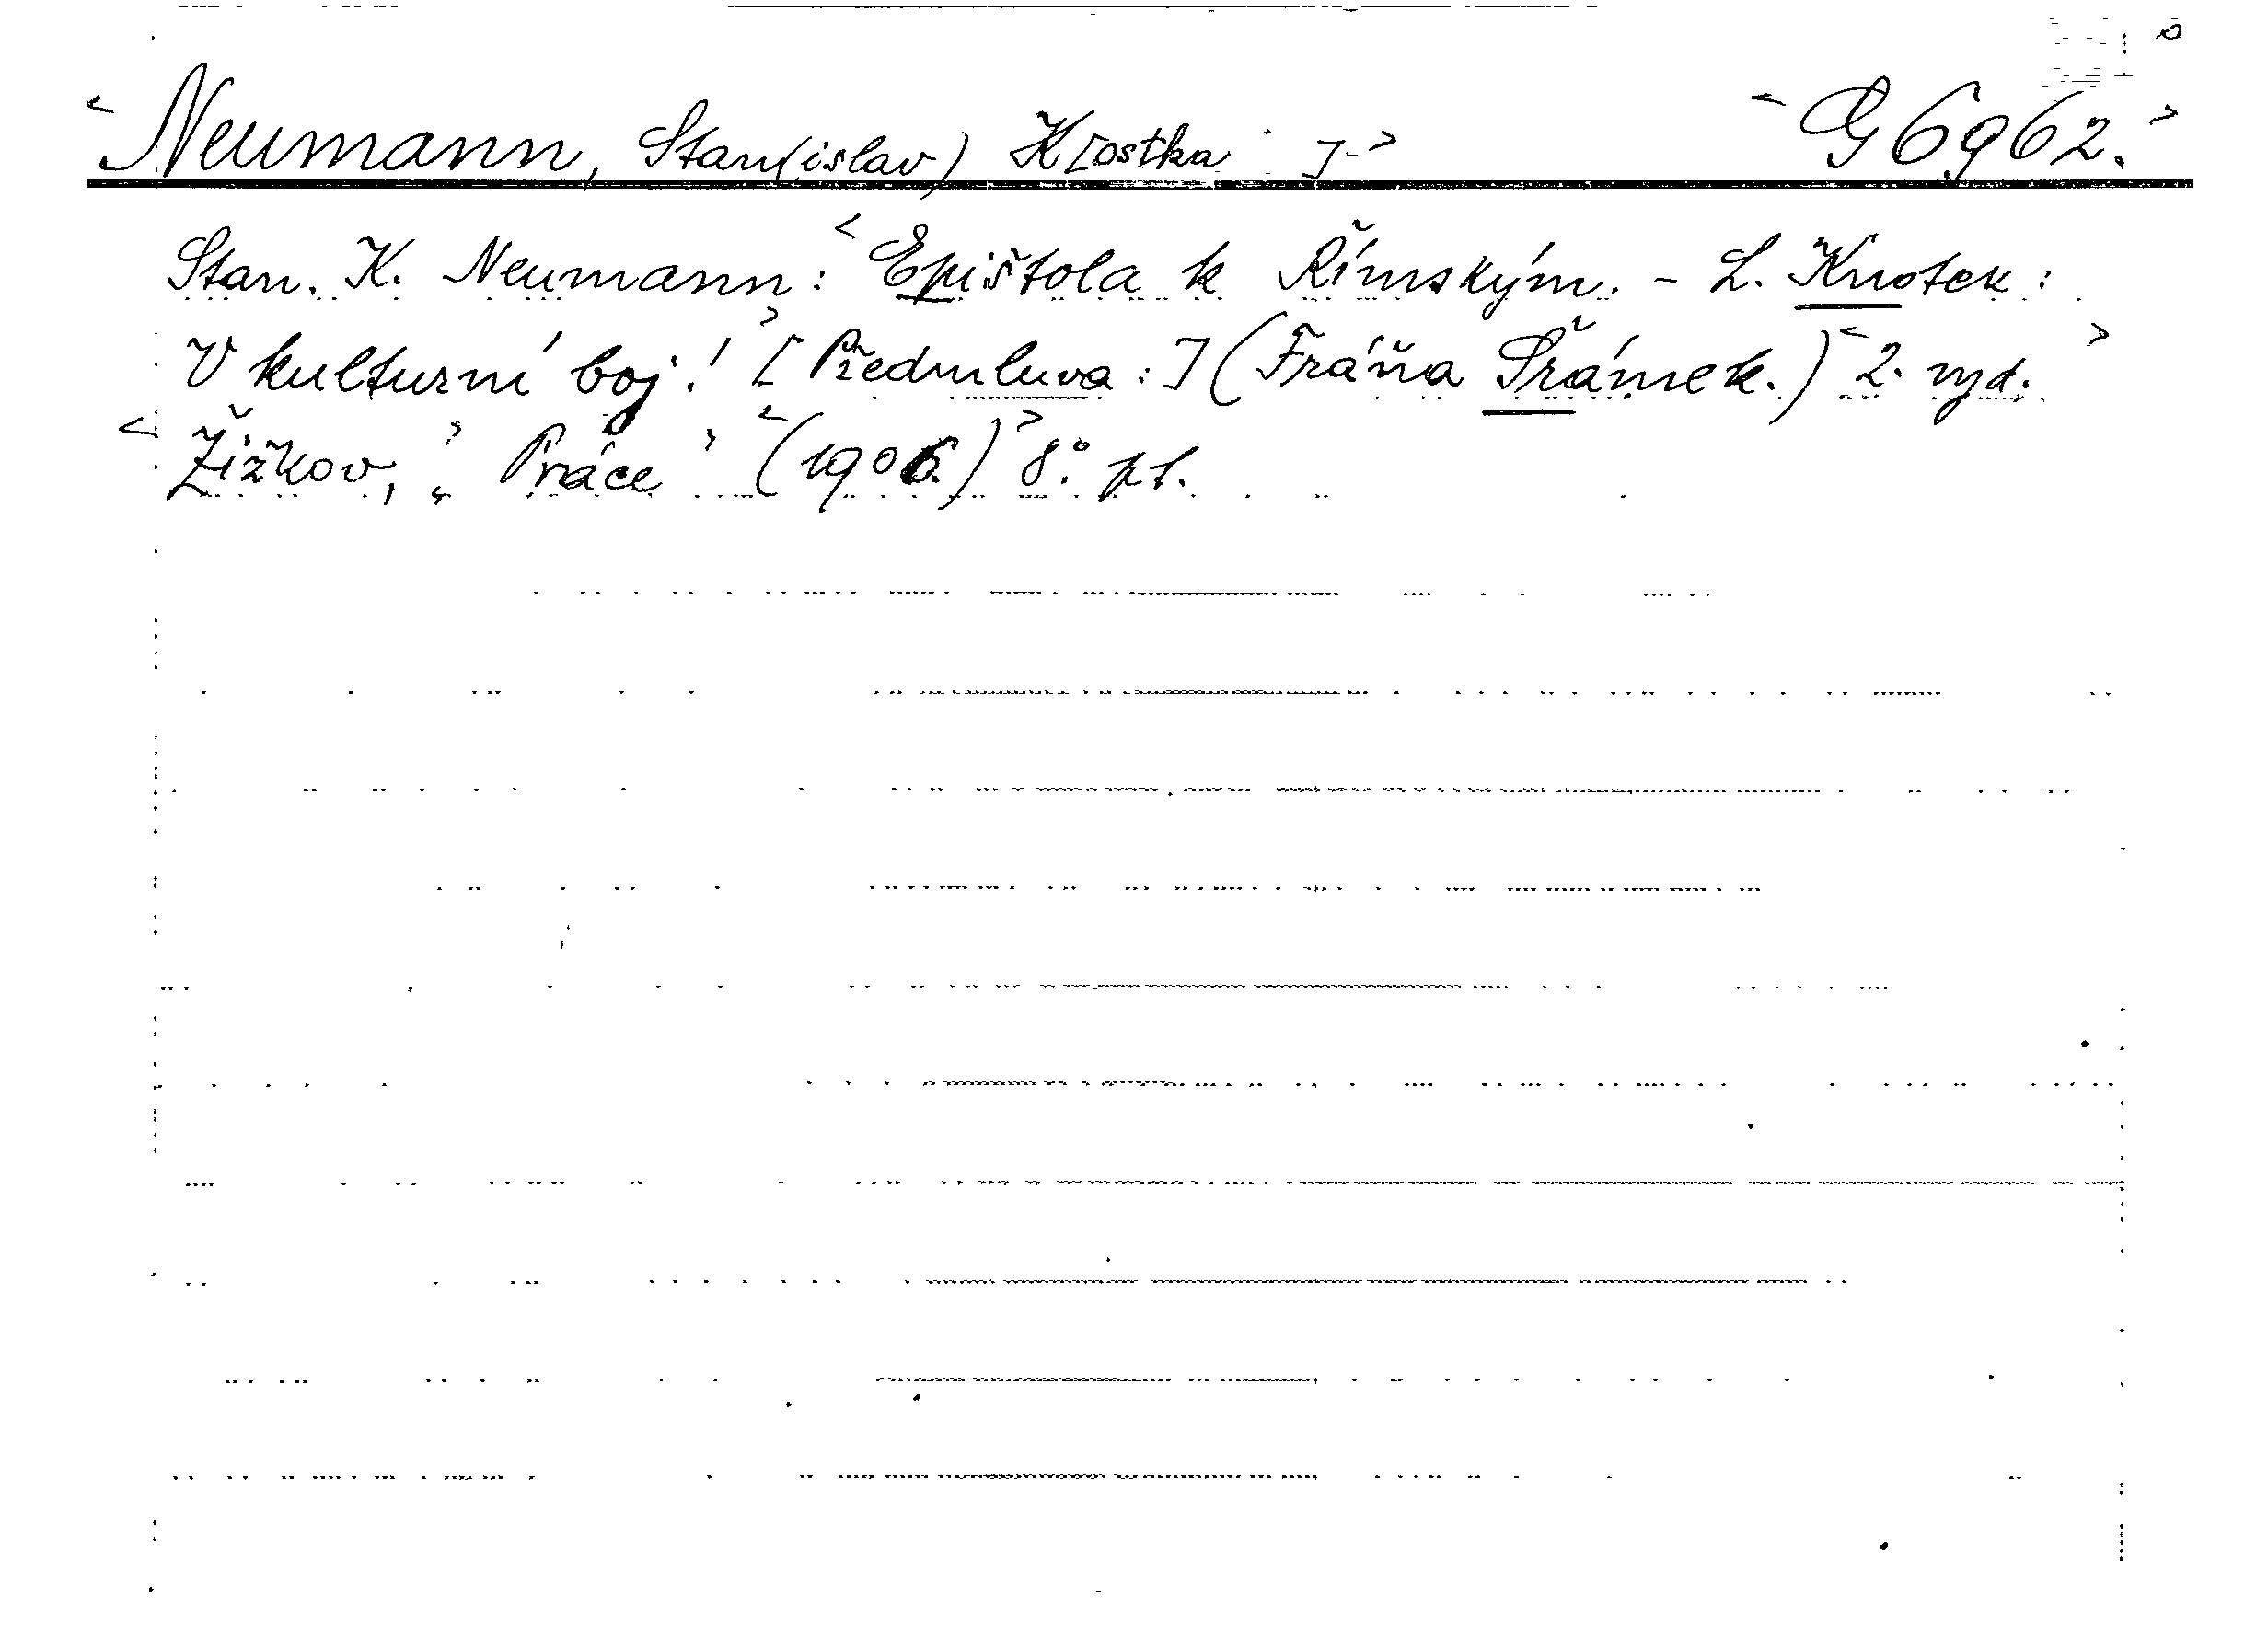 <Neumann, Stan(islav) K[ostka ]-> <G 6962.>
Stan. K. Neumann: <Epištola k Římským. - L. Knotek:
V kulturní boj!> [Předmluva:] (Fráňa Šrámek.) <2. vyd.>
<Žižkov,> „Práce" <(1906.)> 8° pt.